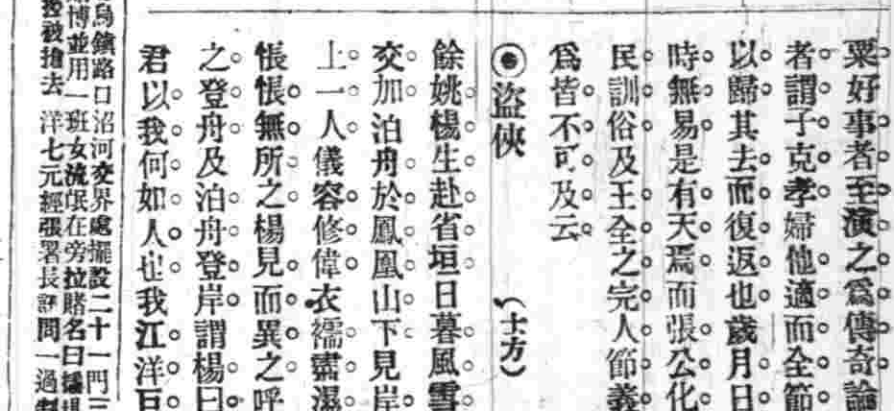 粟好事者至演之爲傳奇論
者謂子克孝婦他適而全節
以歸其去而復返也歲月日
時無易是有天焉而張公化
民訓俗及王全之完人節義
爲皆不可及云
◉盜俠 (士方)
餘姚楊生赴省垣日暮風雪
交加泊舟於鳳凰山下見岸
上一人儀容修偉衣襦濡濕
悵悵無所之楊見而異之呼
之登舟及泊舟登岸謂楊曰
君以我何如人也我江洋巨
烏鎭路口沿河交界處擺設二十一門三
博並用一班女流氓在旁拉賭名曰
被搶去 洋七元經張署長訊問一過